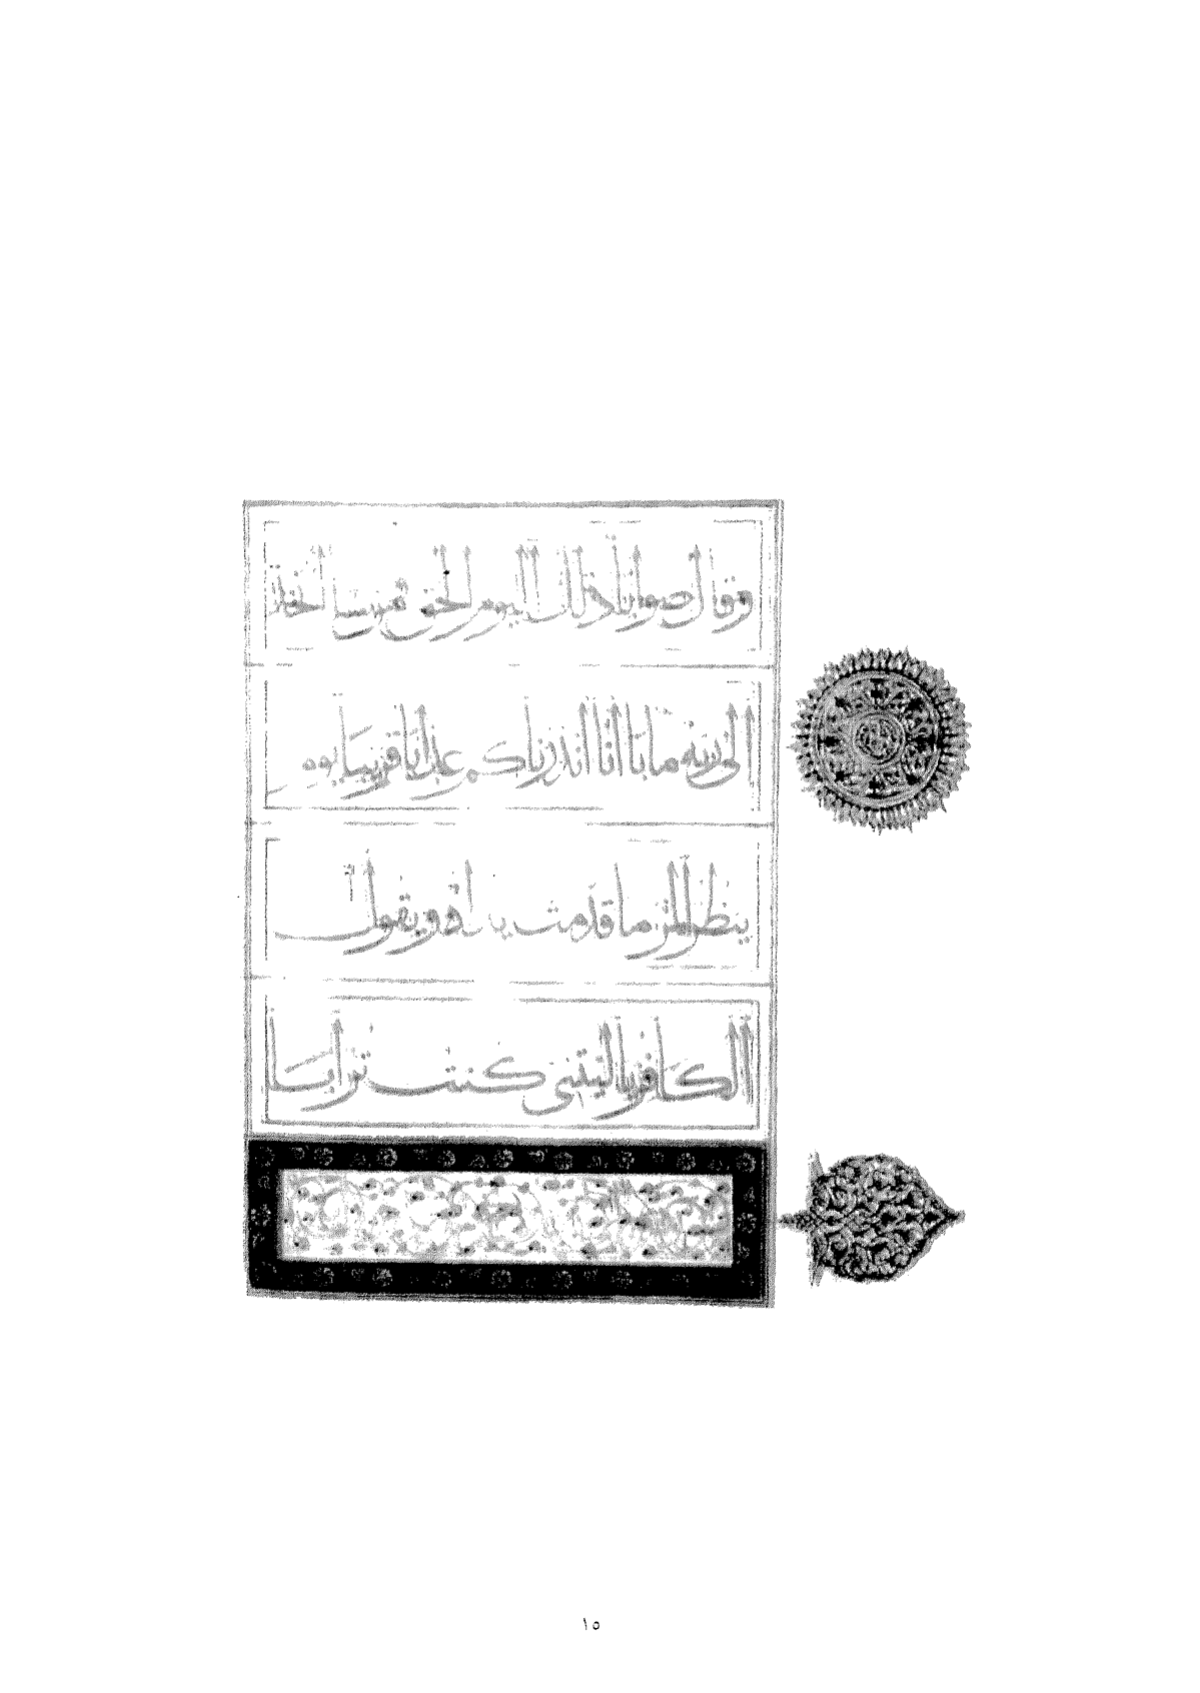 وقال صوابا ذلك اليوم الحق فمن شا اتخذ
الى ربه مابا انا انذرناكم عذابا قريبا يوم
ينظر المرء ما قدمت يداه ويقول
الكافر ياليتنى كنت ترابا
١٥